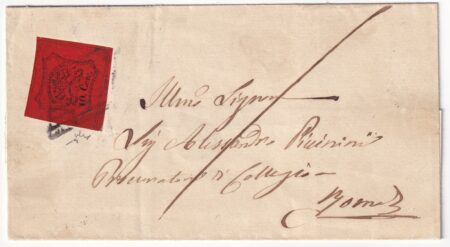 10 C
Illmo Signor
Sig Alessandro Piccinini
Procuratore di Collegio
Roma